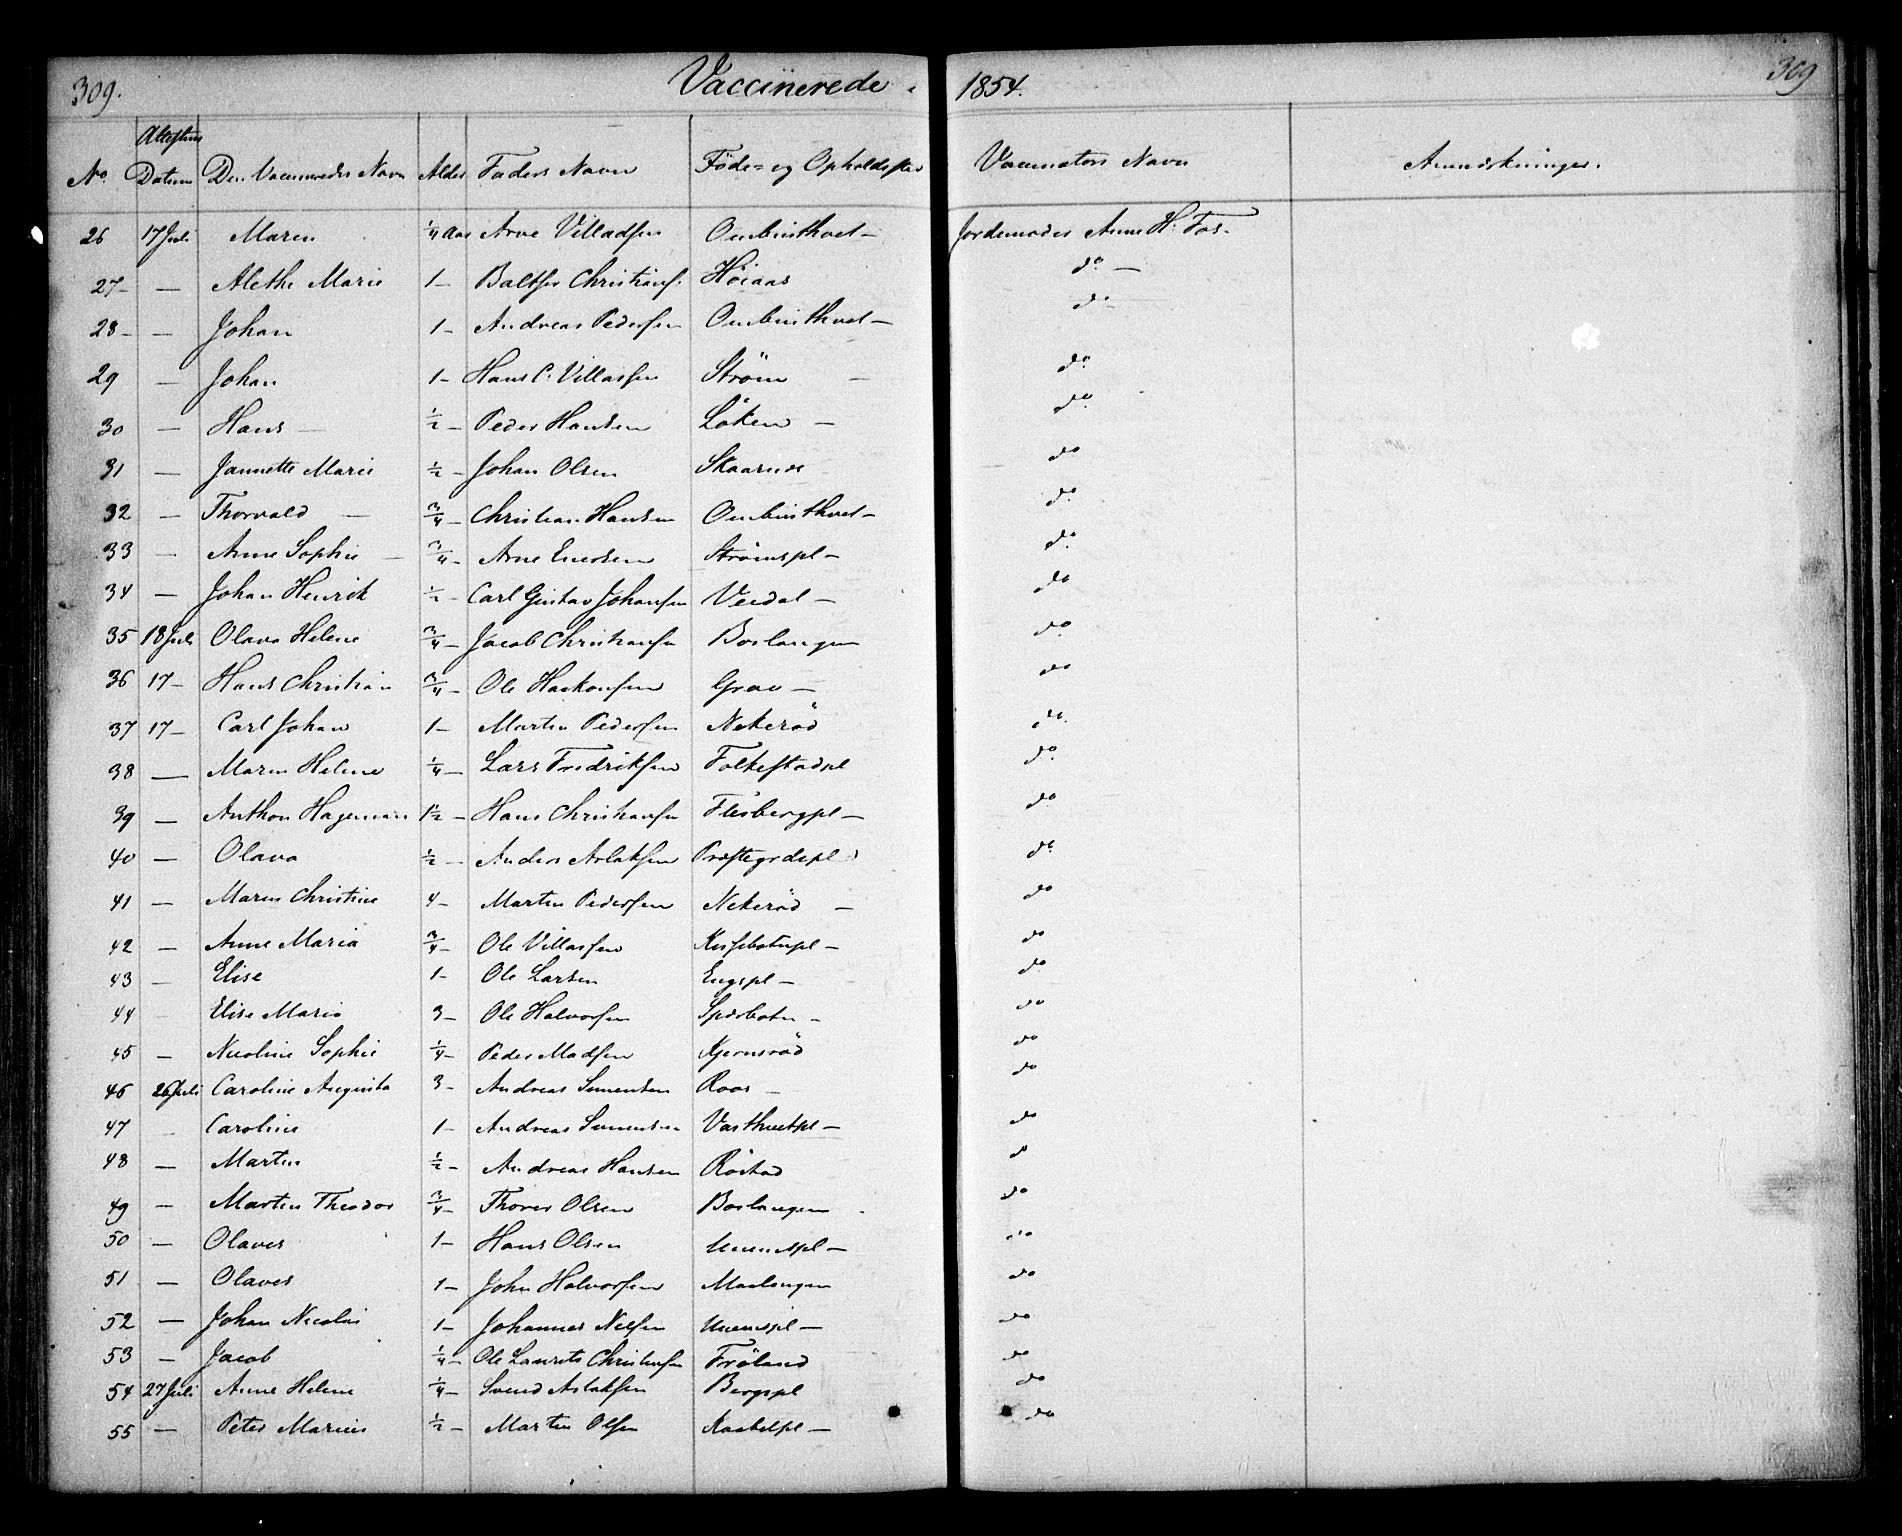 309. Vaccinerede. 1854. 309
No. Attestens Datum Den Vaccineredes Navn Alder Faders Navn Föde- og Opholdssted Vaccinators Navn Anmærkninger.
26 17 Juli Maren 1/4 Aar Arve Villadsen Ombusthvet — Jordemoder Anne H. Fos.
27 — — Alethe Marie 1 — Balthser Christians. Höiaas do —
28 — — Johan 1 — Andreas Pedersen Ombusthvet — do
29 — Johan 1 — Hans C. Villassen Ström — do
30 — Hans — 1/2 — Peder Hansen Löken — do
31 — Jannette Marie 1/2 — Johan Olsen Skaarud do
32 — Thorvald — 3/4 — Christian Hansen Ombusthvet — do
33 — Anne Sophie — 3/4 — Arne Evensen Strömspl — do
34 — Johan Henrik 1/2 — Carl Gustav Johansen Verdal — do
35 18 Juli Olava Helene 3/4 — Jacob Christiansen Boslangen do
36 17 — Hans Christian 3/4 — Ole Haakonsen Grav — do
37 17 — Carl Johan 1 — Martin Pedersen Nekeröd do
38 — Maren Helene 1/4 — Lars Fredriksen Folkestadpl do
39 — Anthon Hageman 1 1/2 — Hans Christiansen Flesbergpl — do
40 — Olava 1/2 — Anders Aslaksen Præstegrdspl do
41 — Maren Christine 4 — Martin Pedersen Nekeröd — do
42 — Anne Maria 3/4 — Ole Villassen do
43 — Elise 1 — Ole Larsen Engspl — do
44 Elise Marie 3 — Ole Halvorsen Sparboten — do
45 — Nicoline Sophie 1/4 — Peder Madsen Kjernsröd do
46 26 Juli Caroline Augusta 3 — Andreas Simensen Roos — do
47 — Caroline 1 — Andreas Simensen Vasthvetpl — do
48 — Martin 1/2 — Andreas Hansen Röstad do
49 — Martin Theodor 3/4 — Thorer Olsen Boslangen do
50 — Olaves 1 — Hans Olsen do
51 — Olaves 1 — John Halvorsen Maslangen do
52 — Johan Nicolai 1 — Johannes Nilsen do
53 — Jacob 1/4 — Ole Laurits Christiansen Fröland do
54 27 Juli Anne Helene 1/4 — Svend Aslaksen Bergspl do
55 — Peter Marius 1/2 — Martin Olsen Kaabelpl — do